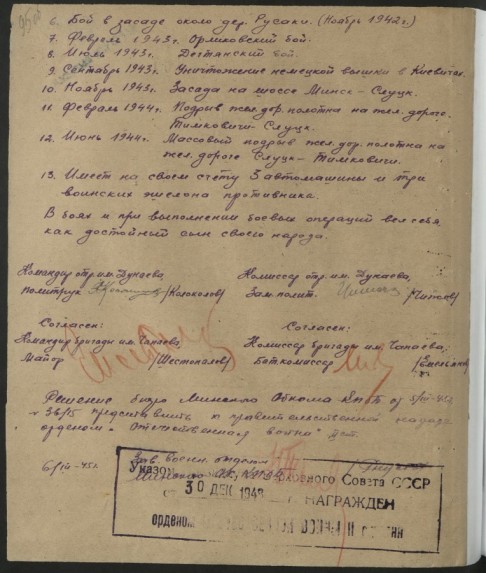 6. Бой в засаде около дер. Русаки. (Ноябрь 1942 г.)
7. Февраль 1943 г. Орликовский бой.
8. Июль 1943 г. бой.
9. Сентябрь 1943 г. Уничтожение немецкой вышки в
10. Ноябрь 1943 г. Засада на шоссе Минск – Слуцк.
11. Февраль 1944 г. Подрыв жел. дор. полотна на жел. дороге
Тимковичи – Слуцк.
12. Июнь 1944 г. Массовый подрыв жел. дор. полотна на
жел. дороге Слуцк – Тимковичи.
13. Имеет на своем счету 3 автомашины и три
воинских эшелона противника.
В боях и при выполнении боевых операций вел себя
как достойный сын своего народа.
Командир отр. им. Дунаева, Комиссар отр. им. Дунаева,
Политрук /Колоколов/ Зам. полит.
Согласен: Согласен:
Командир бригады им. Чапаева, Комиссар бригады им. Чапаева,
Майор /Шестопалов/ Бат. комиссар
Решение бюро Минского Обкома от
представить к правительственной награде
орденом "Отечественная война"
Зав. отделом
Указом Верховного Совета СССР
30 ДЕК 1948 г. НАГРАЖДЕН
орденом